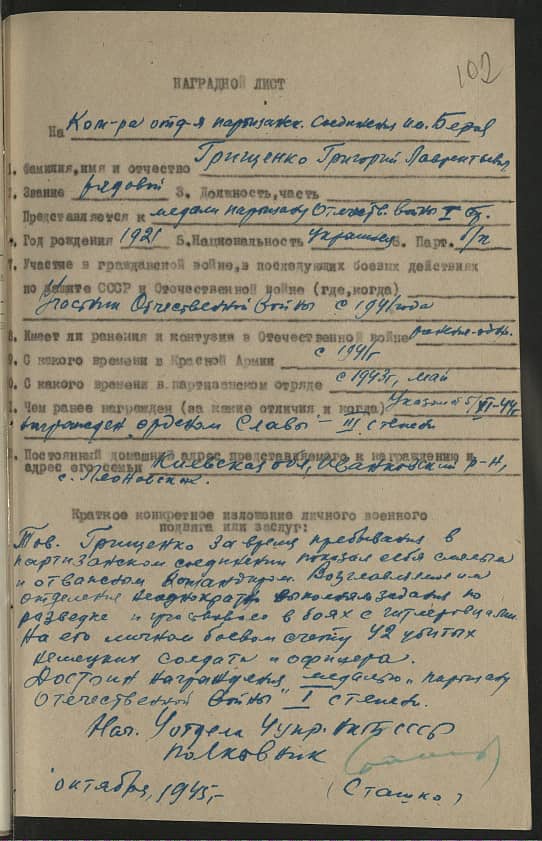 102
НАГРАДНОЙ ЛИСТ
На Ком-ра отд-я партизанск. соединения им. Берия
1. Фамилия,имя и отчество Грищенко Григорий Лаврентьевич
2. Звание рядовой 3. Должность,часть
Представляется к медали партизану Отечеств. войны I ст.
4. Год рождения 1921 5.Национальность украинец 6. Парт. б/п
7. Участие в гражданской войне,в последующих боевых действиях
по защите СССР и Отечественной войне (где,когда)
Участник Отечественной войны с 1941 года
8. Имеет ли ранения и контузии в Отечественной войне
9. С какого времени в Красной Армии с 1941г
10. С какого времени в партизанском отряде с 1943г, май
11. Чем ранее награжден (за какие отличия и когда) Указом от 5/VI-44г
награжден орденом Славы - III степени
12. Постоянный домашний адрес представляемого к награждению и
адрес его семьи Киевская обл, Иванковский р-н,
с.
Краткое конкретное изложение личного военного
подвига или заслуг:
Тов. Грищенко за время пребывания в
партизанском соединении показал себя смелым
и отважным командиром. Возглавляемое им
отделение неоднократно выполняло задания по
разведке и участвовало в боях с гитлеровцами.
На его личном боевом счету 42 убитых
немецких солдата и офицера.
Достоин награждения медалью "партизану
Отечественной войны" I степени.
Нач. отдела 4 упр. НКГБ СССР
полковник
(Сташко)
октября, 1945г.